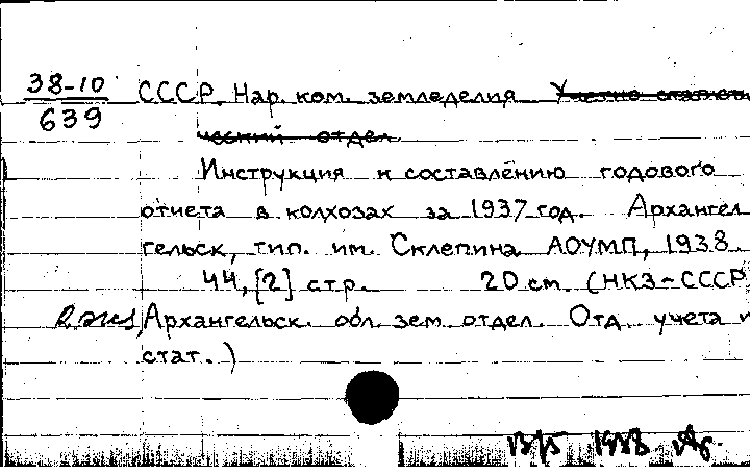 38-10 СССР. Нар. ком. земледелия Учетно статист
639 ческий отдел.
Инструкция к составлению годового
отчета в колхозах за 1937 год. Арханге
гельск, тип. им. Склепина АОУМП, 1938.
44, [2] стр. 20 см. (НКЗ-СССР
2 экз Архангельск. обл. зем. отдел. Отд. учета и
стат.)